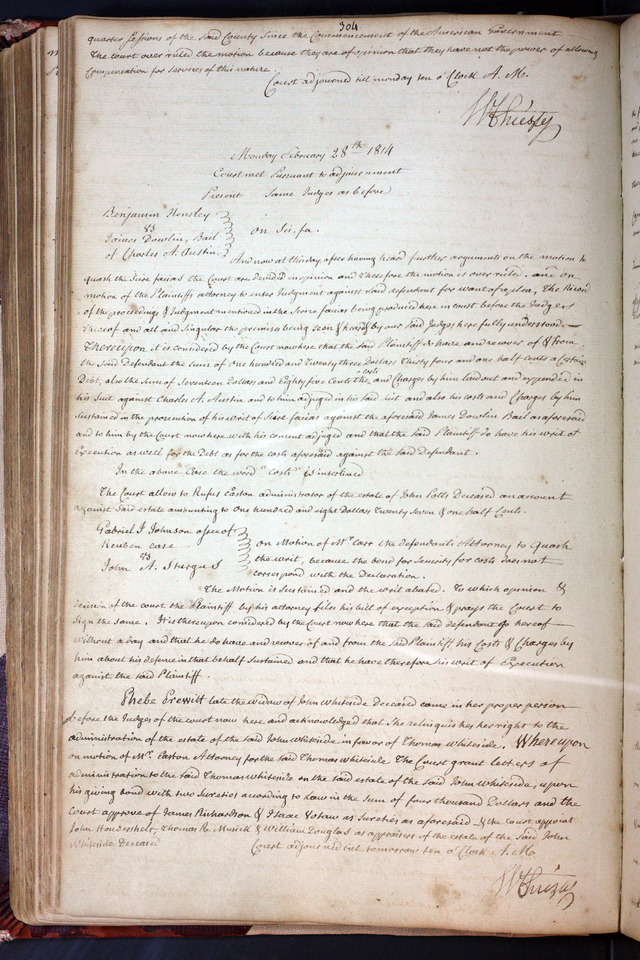 304
quarter Sessions of the Said County Since the Commencement of the American Government
The court over ruled the motion because they are of opinion that they have not the power of allowing
Compensation for Services of this nature.
Court adjourned till monday ten o'Clock A. M.
Monday February 28th 1814
Court met Pursuant to adjournment
Present Same Judges as before
Benjamin Hensley
vs
James Dowlin, Bail
of Charles A. Austin
on Sci. fa.
And now at this day, after having heard further arguments on the motion to
quash the Scire facias the Court are divided in opinion and therefore the motion is over ruled. and on
motion of the Plaintiffs attorney to enter Judgment against said defendant for want of a plea, The Record
of the proceedings & Judgment mentioned in the Scire facias being produced here in court before the Judges
thereof and all and Singular the premises being seen & heard by our said Judges here fully understood. —
Thereupon it is considered by the Court now here that the said Plaintiff do have and recover of & from
the Said Defendant the Sum of one hundred and Twenty three Dollars Thirty four and one half cents a Certain
Debt, also the Sum of Seventeen Dollars and Eighty five Cents the costs and Charges by him laid out and expended in
his Suit against Charles A. Austin and to him adjudged in his said Suit and also his costs and Charges by him
Sustained in the prosecution of his writ of Scire facias against the aforesaid James Dowlin Bail as aforesaid
and to him by the Court now here with his consent adjuged and that the said Plaintiff do have his writ of
Execution as well for the Debt as for the costs aforesaid against the Said Defendant.
In the above Case the word "costs" is interlined
The Court allow to Rufus Easton administrator of the estate of John Potts Deceased an account
against said estate amounting to One hundred and eight Dollars Twenty Seven & one half Cents.
Gabriel J Johnson assee of
Reuben Case
vs
John A. Sturgus
on Motion of Mr Carr the defendants Attorney to Quash
the writ, because the bond for Security for costs does not
correspond with the Declaration.
The Motion is Sustained and the writ abated. To which opinion &
decision of the court the Plaintiff by his attorney files his bill of exception & prays the Court to
Sign the Same. It is thereupon considered by the Court now here that the said defendant go hereof
without a day and that he do have and recover of and from the Said Plaintiff his Costs & Charges by
him about his defence in that behalf Sustained and that he have therefore his writ of Execution
against the said Plaintiff.
Phebe Prewitt late the widow of John Whiteside Deceased came in her proper person
before the Judges of the court now here and acknowledged that She relinquishes her right to the
administration of the estate of the said John Whiteside in favor of Thomas Whiteside. Whereupon
on motion of Mr. Easton Attorney for the Said Thomas Whiteside The Court grant letters of
administration to the said Thomas Whiteside on the said estate of the Said John Whiteside, upon
his giving bond with two Sureties according to Law in the Sum of four thousand Dollars and the
Court approve of James Richardson & Isaac as Sureties as aforesaid & the court appoint
John Thomas R. Musick & William Douglas as appraisers of the estate of the Said John
Whiteside Deceased
Court adjourned till tomorrow ten o'Clock A. M.